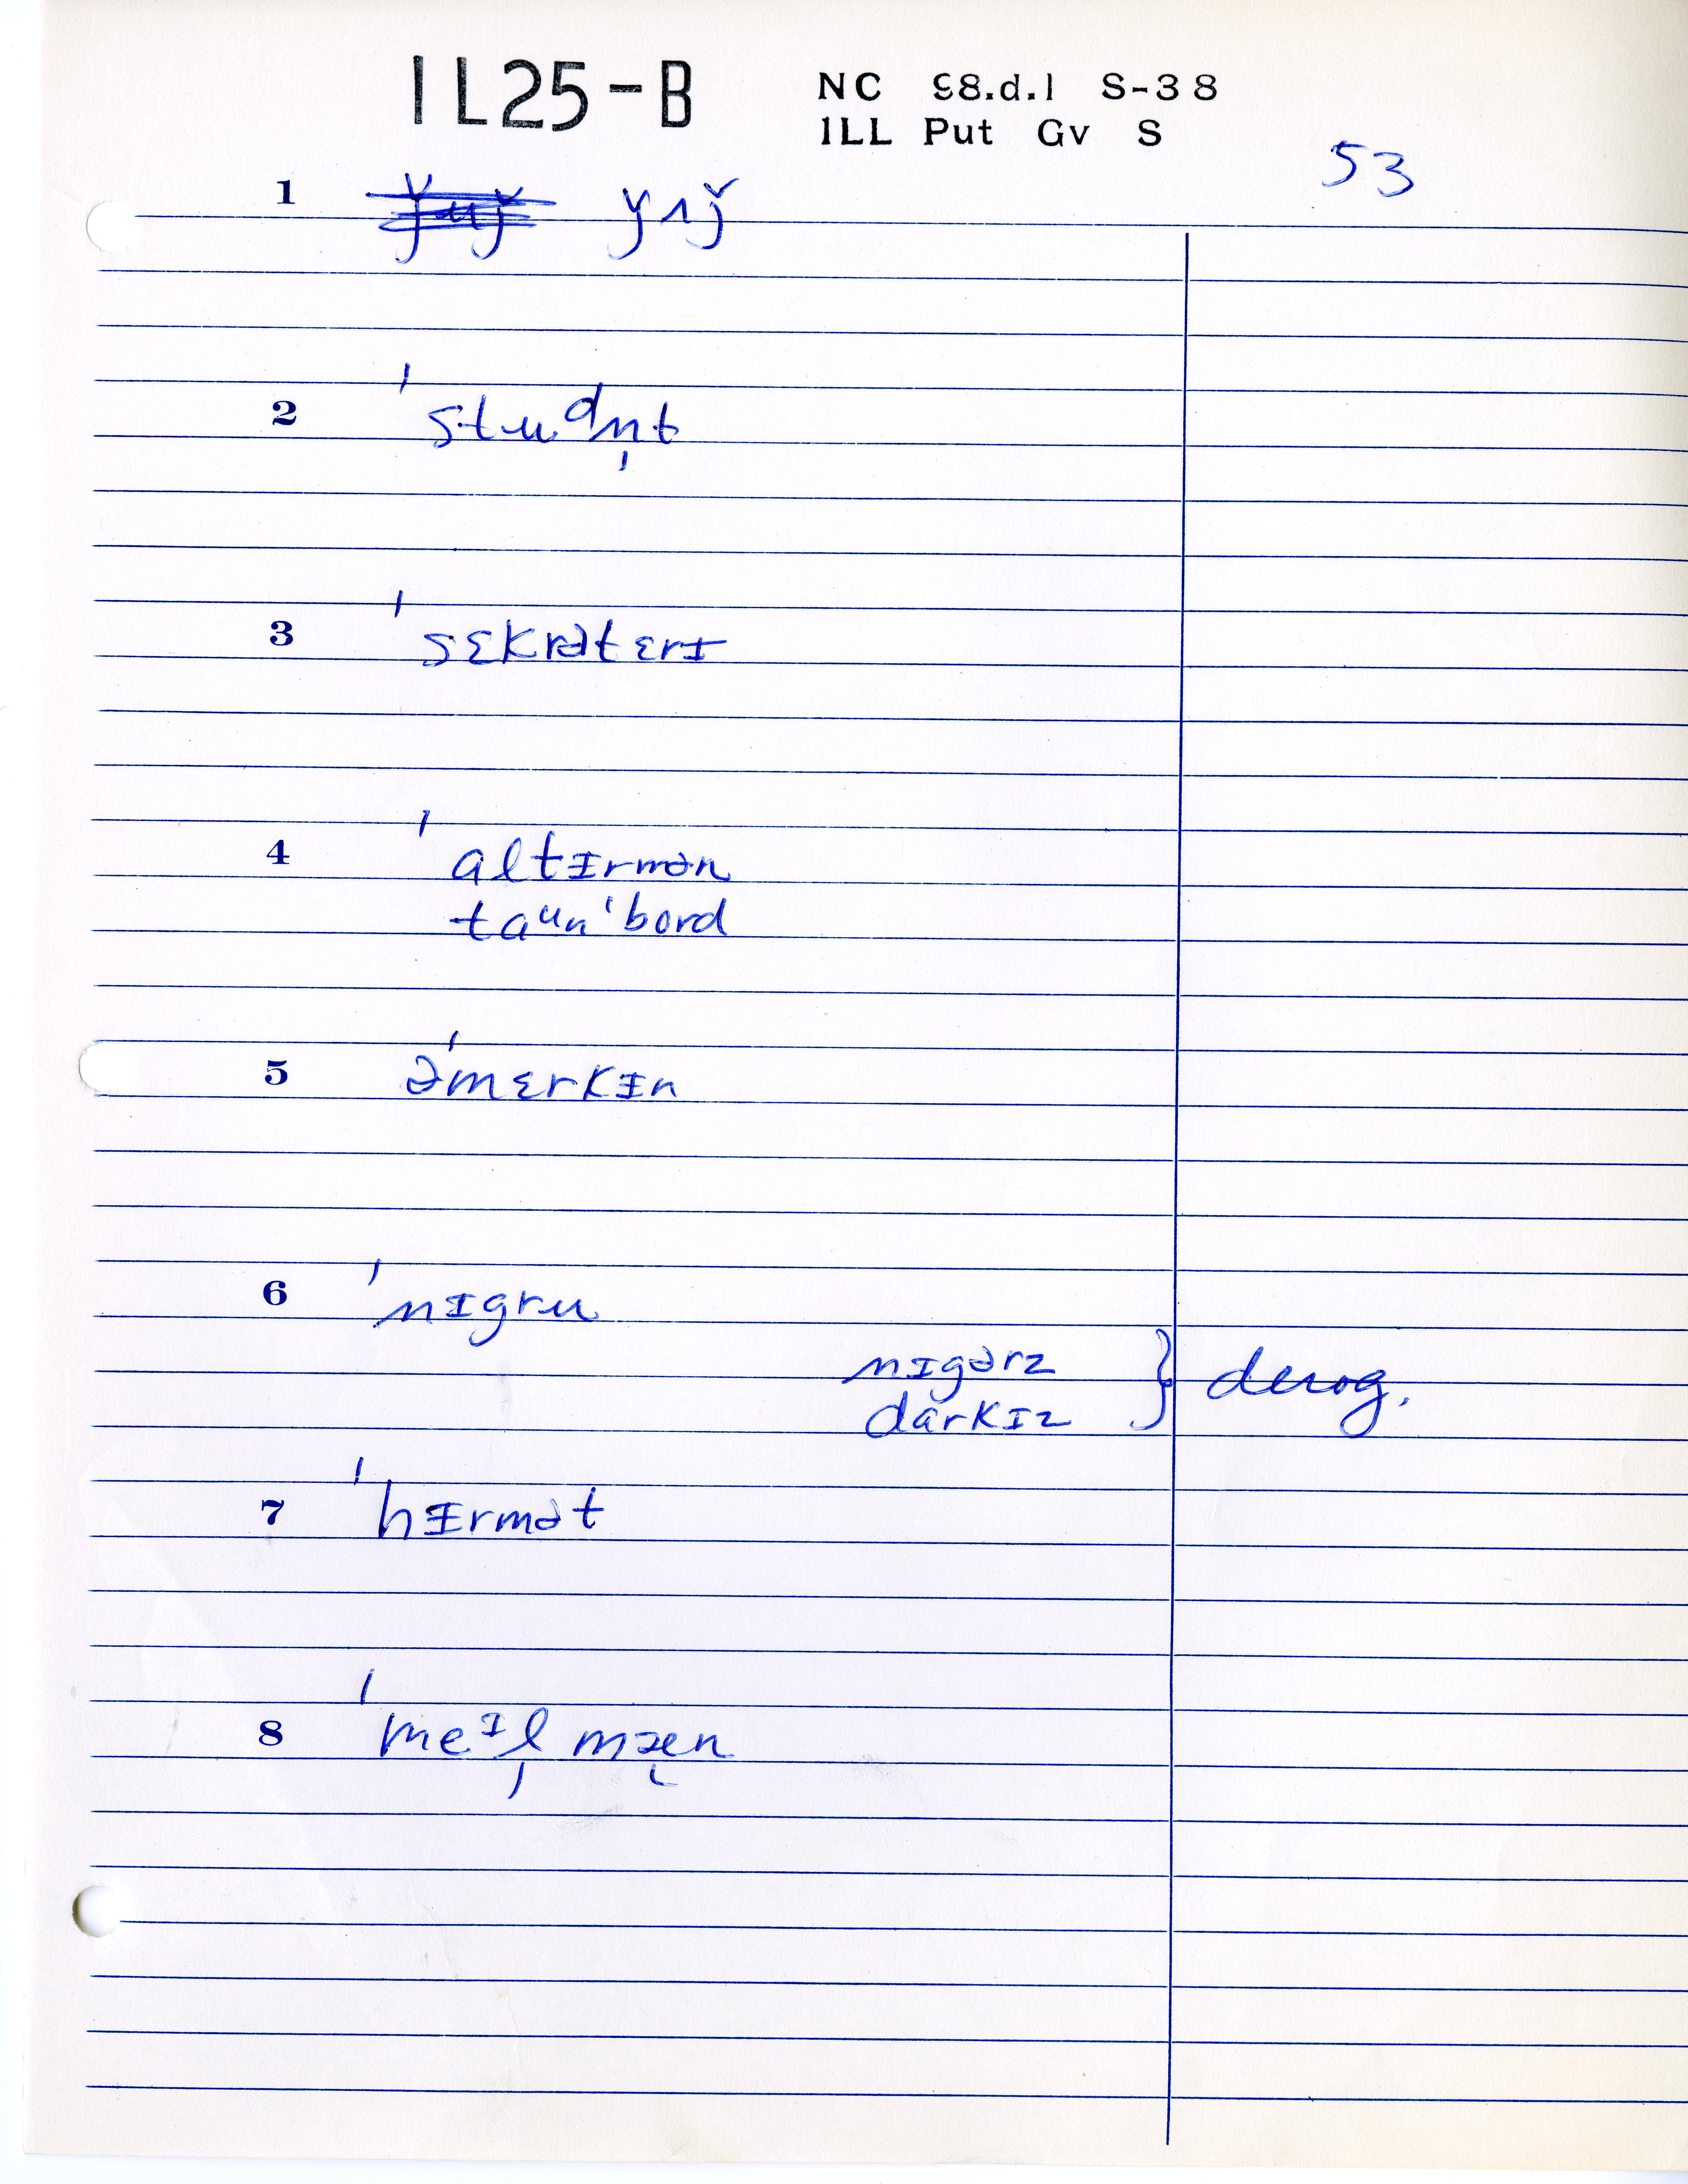 IL25-B
NC 98.d.1 S-38
ILL Put Gv S
53
1 ǰʌǰ
2 ˈstudn̩t
3 ˈsɛkrətɛrɪ
4 ˈaltɪrmən
taᵘnˈbord
5 əˈmɛrkɪn
6 ˈnɪgru
nɪgərz } derog.
darkɪz
7 ˈhɪrmət
8 ˈmeᶦl̩ mæn